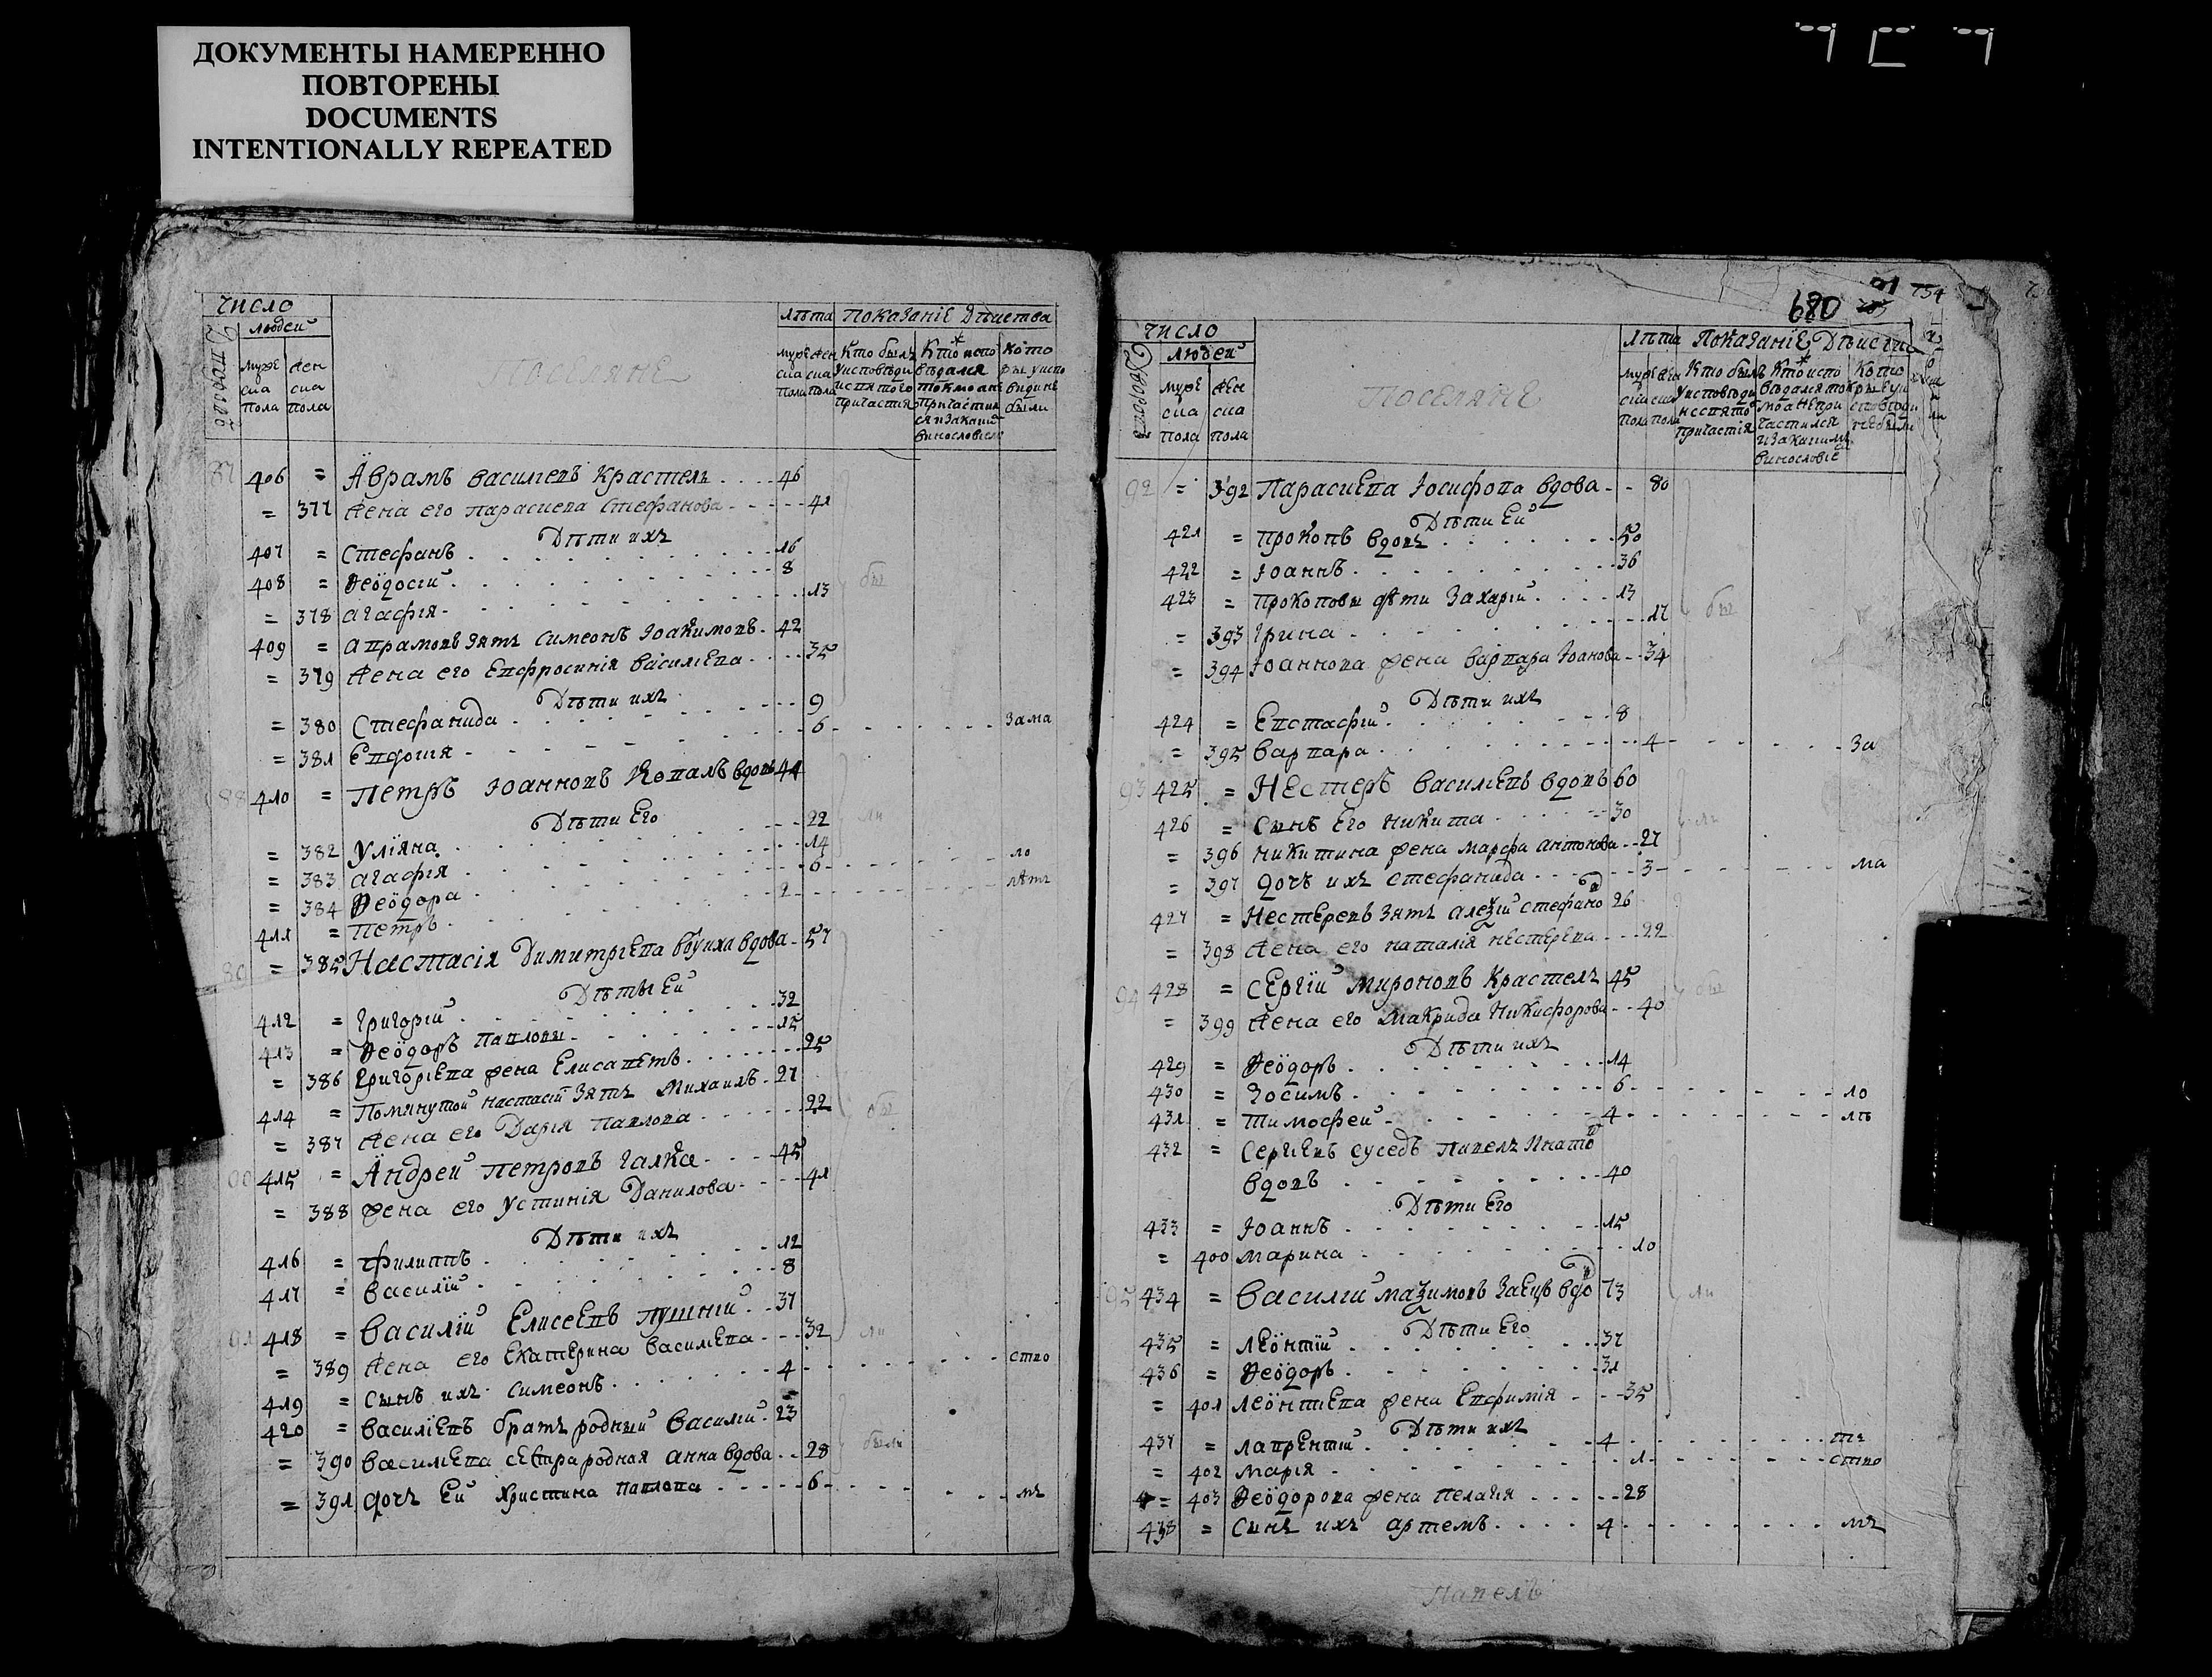 ДОКУМЕНТЫ НАМЕРЕННО
ПОВТОРЕНЫ
DOCUMENTS
INTENTIONALLY REPEATED
число
людей
мужеска пола
женска пола
Поселяне
лѣта
Показаніе Дѣйства
406 = Аврамъ василевъ Крастель 46
= 377 Жена его парасцева стефанова 41
Дѣти ихъ
407 = Стефанъ 16
408 = Ѳеѡдосій 8
= 378 агафія 13
409 = аврамовъ зять симеонъ Іоакимовъ 42
= 379 Жена его Евфросинія василіева 35
Дѣти ихъ
= 380 Стефанида 9
= 381 Евфогія 6 зама
88 410 = Петръ Іоанновъ Ковалъ вдовъ 44
Дѣти Его
= 382 Уліяна 22
= 383 агафія 14
= 384 Ѳеѡдора 6 ло
411 = Петръ 2 лѣтъ
= 385 Настасія Димитріева вдова 57
Дѣты Ей
412 = Григорій 32
413 = Ѳеѡдоръ павловы 15
= 386 Григоріева жена Елисаветъ 25
414 = Помянутой настасіи зять Михаилъ 27
= 387 Жена его Дарія павлова 22
415 = Андрей петровъ галка 45
= 388 жена его устинія Данилова 41
Дѣти ихъ
416 = филиппъ 12
417 = василій 8
91 418 = василій Елисеевъ лушній 37
= 389 Жена его Екатерина василіева 32
419 = сынъ ихъ симеонъ 4 ство
420 = василіевъ братъ родный василій 23
= 390 василіева сестра родная анна вдова 28
= 391 дочъ Ей христина павлова 6 мъ
680 754
число
людей
мужеска пола
женска пола
Поселяне
лѣта
Показаніе Дѣйства
92 = 392 Парасцева Іосифова вдова 80
Дѣти Ей
421 = прокопъ вдовъ 50
422 = Іоаннъ 36
423 = прокоповы дѣти Захарій 13
= 393 Ірина 17
= 394 Іоаннова жена варвара Іоанова 34
Дѣти ихъ
424 = Евстафій 8
= 395 варвара 4 за
93 425 = Нестеръ василіевъ вдовъ 60
426 = Сынъ Его никита 30
= 396 никитина жена марфа антонова 27
= 397 дочъ ихъ стефанида 3 ма
427 = Нестеревъ зять алеѯій стефано 26
= 398 Жена его наталія нестерева 22
94 428 = Сергій миѡновъ Крастель 45
= 399 Жена его макрида никифорова 40
Дѣти ихъ
429 = Ѳеѡдоръ 14
430 = Зосимъ 6 ло
431 = Тимофей 4 лѣ
432 = Сергіевъ суседъ
вдовъ 40
Дѣти Его
433 = Іоаннъ 15
= 400 марина 10
95 434 = Василій маѯимовъ Заецъ вдо 73
Дѣти Его
435 = Леѡнтій 37
436 = Ѳеѡдоръ 31
= 401 леѡнтіева жена Евфимія 35
Дѣти ихъ
437 = лаврентій 4 тъ
= 402 марія 1 ство
= 403 Ѳеѡдорова жена пелагія 28
438 = Сынъ ихъ артемъ 4 мъ
Павелъ